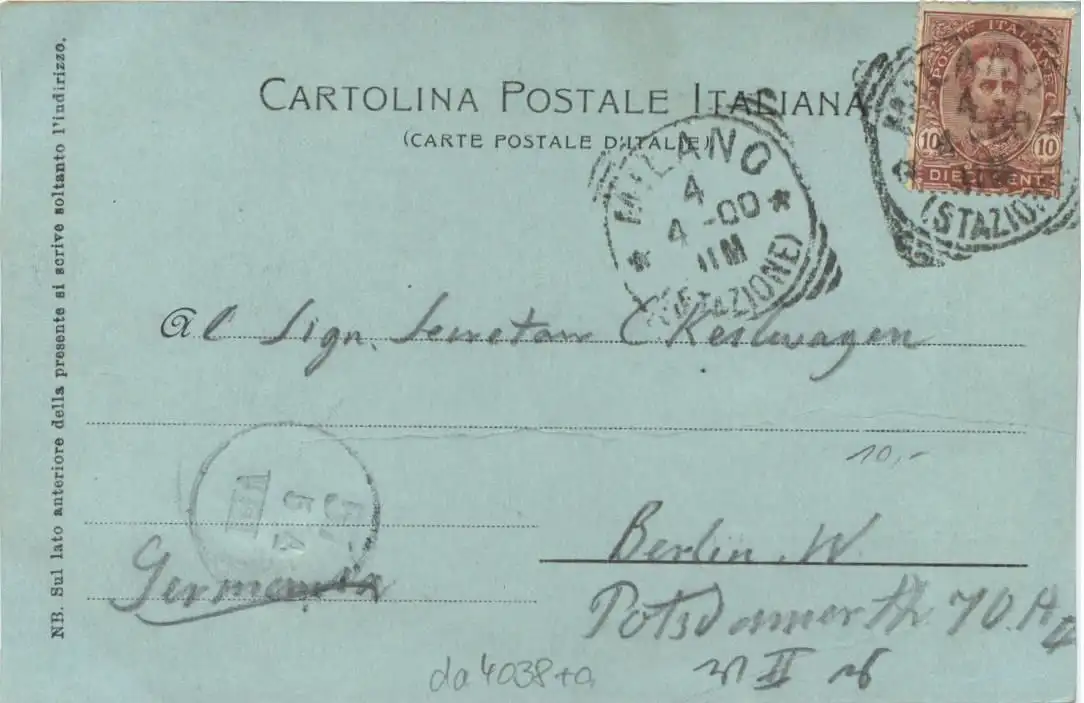 POSTE ITALIANE
10 10
DIECI CENT
CARTOLINA POSTALE ITALIANA
(CARTE POSTALE D'ITALIE)
MILANO
4
4 - 00
11M
(STAZIONE)
MILANO
4
(STAZIONE)
NB. Sul lato anteriore della presente si scrive soltanto l'indirizzo.
Al Sign.
10,-
5 4
Berlin. W.
Germania
Potsdamerstr 70.
II
da4038+a